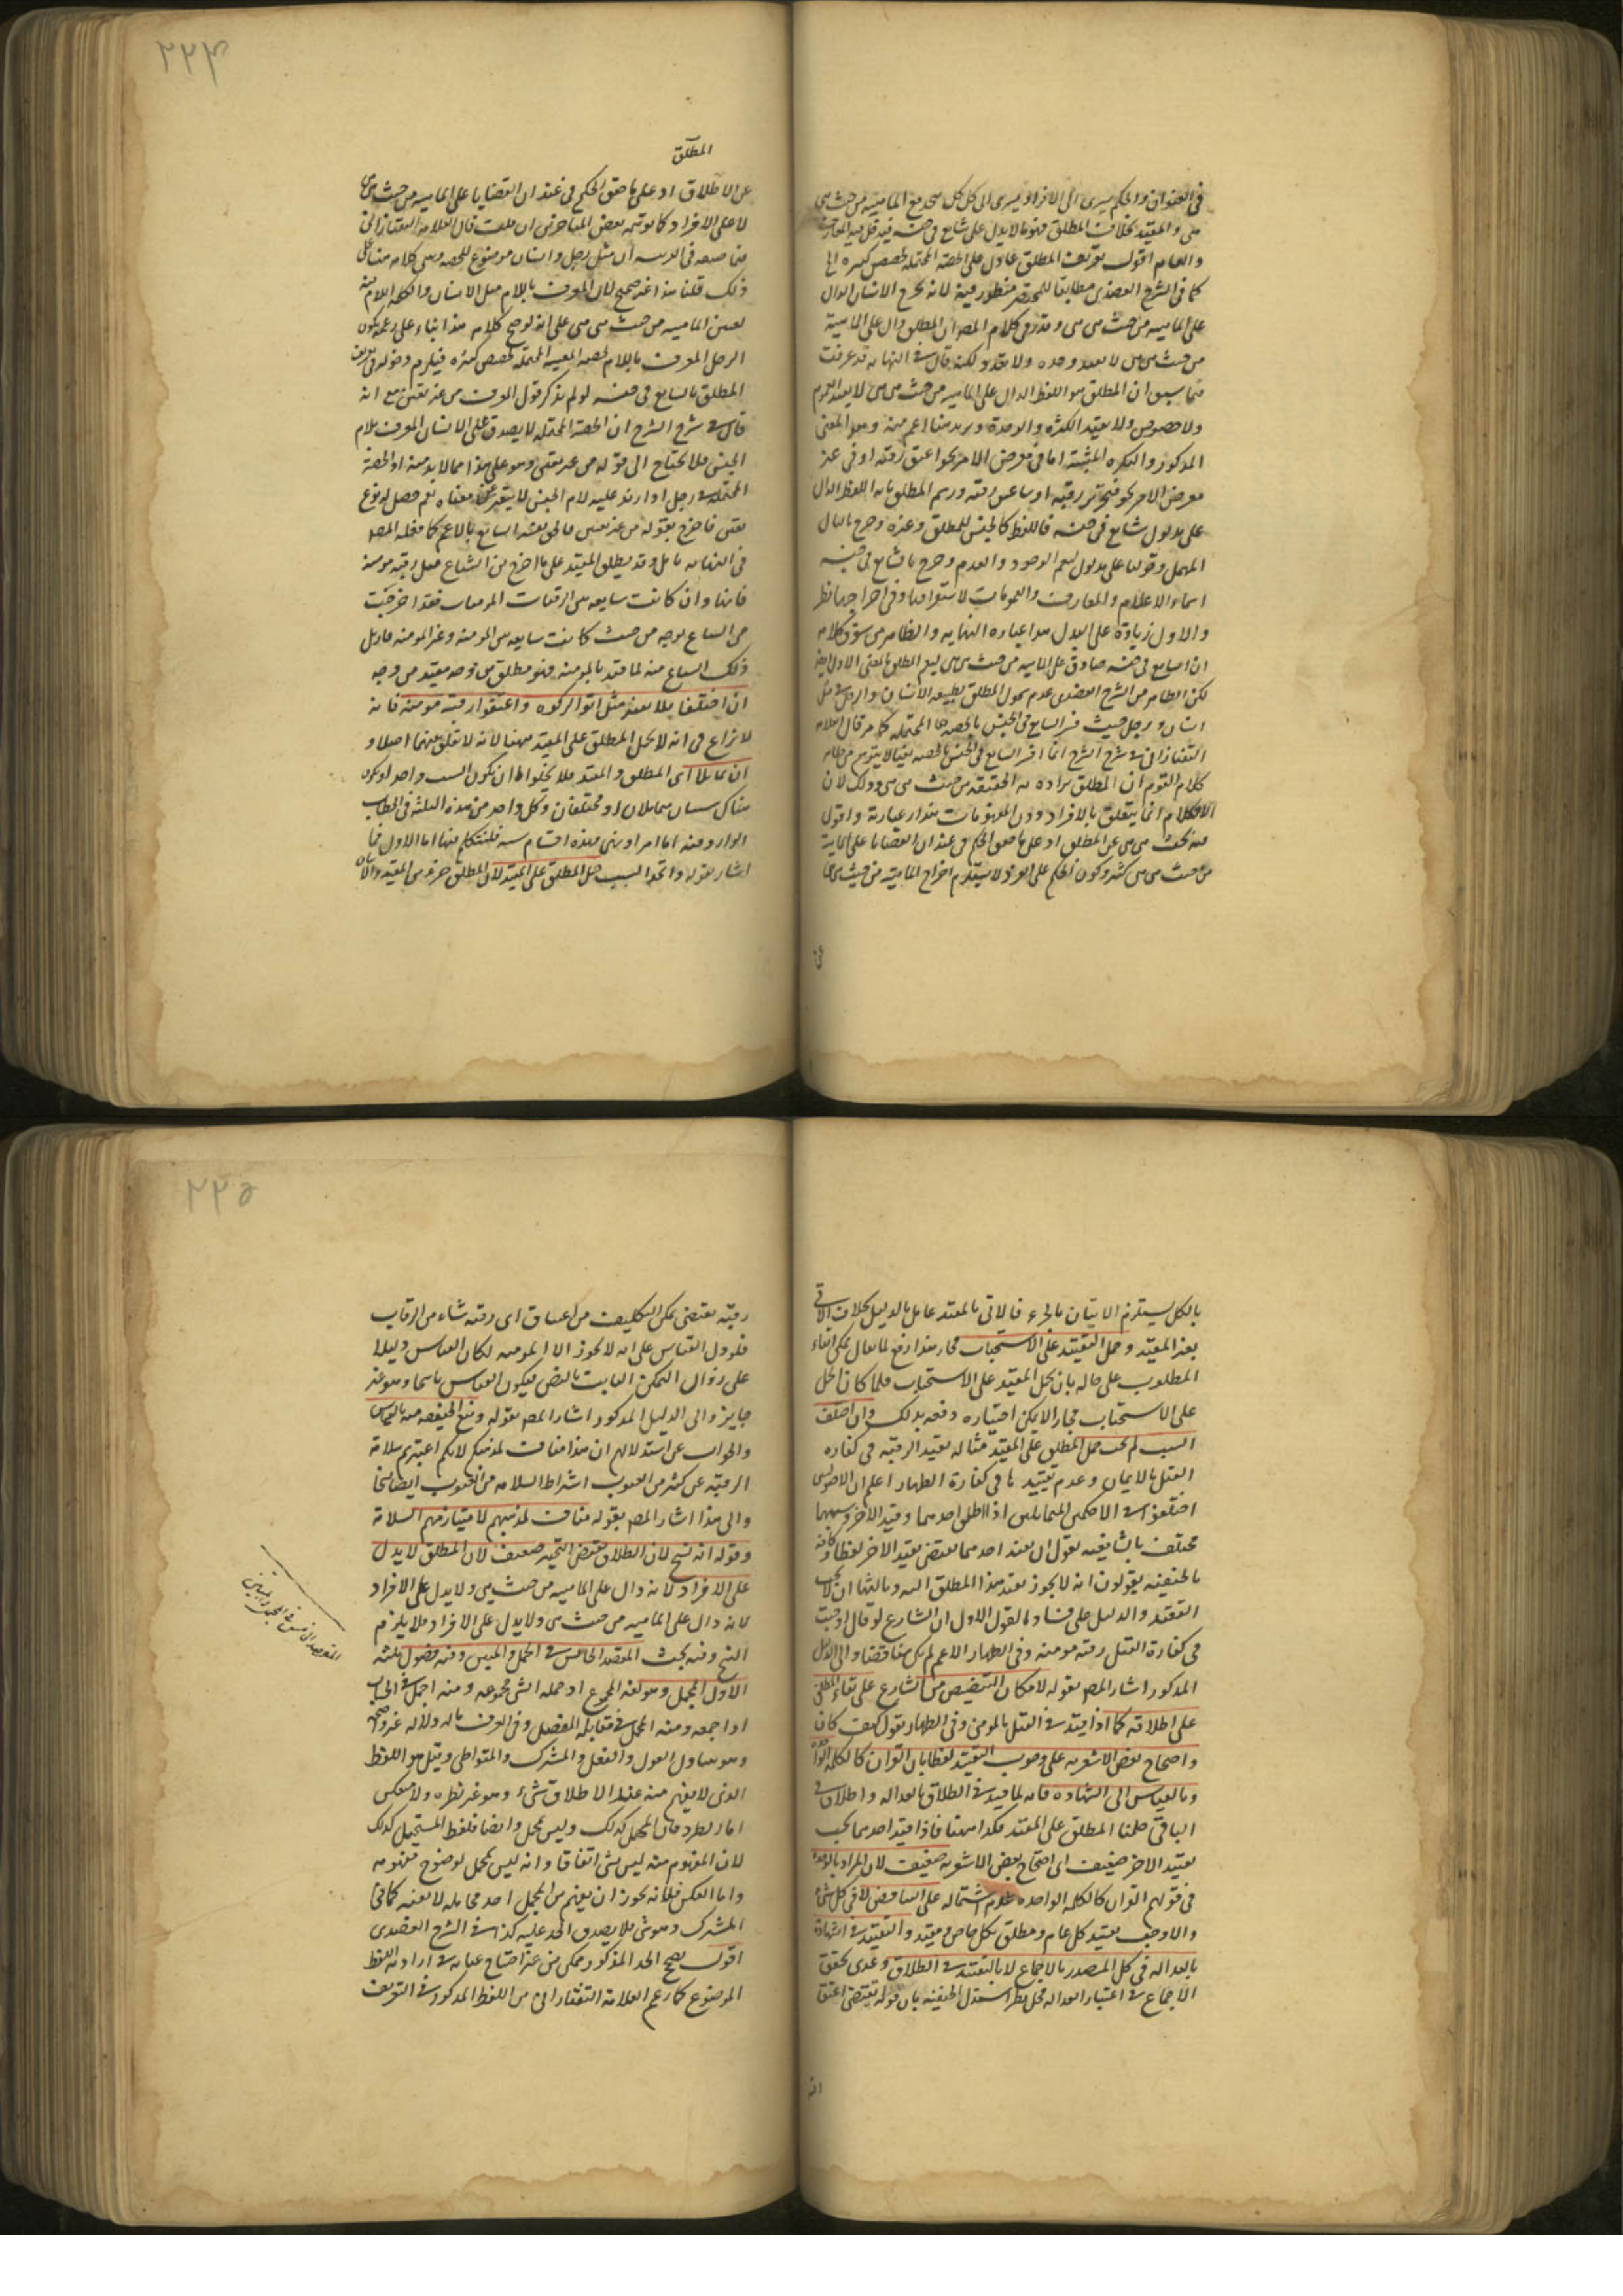 ٢٢٤
في العنوان والحكم يسري الى الافراد ويسري الى كل كل متحد مع الماهية من حيث هي
هي والمقيد بخلاف المطلق فهو ما لا يدل على شايع في جنسه فيدخل فيه المعارف
والعام اقول تعريف المطلق بما دل على الحصة المحتملة لحصص كثيرة
كما في الشرح العضدي مطابقا منظور فيه لانه يخرج الانسان الدال
على الماهيه من حيث هي هي وقد مر في كلام المص ان المطلق دال على الماهية
من حيث هي هي لا بقيد وحده ولا تعدد ولكنه قال في النهايه قد عرفت
فيما سبق ان المطلق هو اللفظ الدال على الماهيه من حيث هي هي لا بقيد العموم
ولا خصوص ولا بقيد الكثرة والوحدة ويريد هنا اعم منه وهو المعنى
المذكور والنكره المثبتة اما في معرض الامر نحو اعتق رقبه او في غير
معرض الامر نحو فتحرير رقبه او ساعتق رقبه ورسم المطلق بانه اللفظ الدال
على مدلول شايع في جنسه فاللفظ كالجنس للمطلق وغيره وخرج بالدال
المهمل وقولنا على مدلول يعم الوجود والعدم وخرج بالشايع في جنسه
اسماء الاعلام والمعارف والعمومات لاستغراقها وفي اخراجها نظر
والاول زيادة على البدل هذا عباره النهايه والظاهر من سوق كلامه
ان الشايع في جنسه صادق على الماهيه من حيث هي هي ليعم المطلق بالمعنى الاول ايضا
لكن الظاهر من الشرح العضدي عدم شمول المطلق لطبيعه الانسان والرجل في مثل
انسان ورجل حيث فسر الشايع في الجنس بالحصه المحتملة كما مر قال العلامه
التفتازاني في شرح الشرح انما فسر الشايع في الجنس بالحصه نفيا لما يتوهم من ظاهر
كلام القوم ان المطلق يراد به الحقيقه من حيث هي هي وذلك لان
الاحكام انما يتعلق بالافراد دون المفهومات هذا عبارته واقول
فيه بحث من هي عن المطلق اذ على ما حقق الحكم في عقد ان القضايا على الماهية
من حيث هي هي كثير وكون الحكم على الفرد لا يستلزم اخراج الماهيه من حيث هي هي
عن
المطلق
عن الاطلاق اذ على ما حقق الحكم في عقد ان القضايا على الماهيه من حيث هي هي
لا على الافراد كما توهمه بعض المتاخرين ان قلت قال العلامة التفتازاني
ان مثل رجل وانسان موضوع للحصه وهي كلامه هنا على
ذلك قلنا هذا غير صحيح لان المعرف باللام مثل الانسان والكلمه اللام فيه
لتعين الماهيه من حيث هي هي على انه لو صح كلامه هذا بناء على زعمه يكون
الرجل المعرف باللام لحصه المعينه المحتملة لحصص كثيره فيلزم دخوله في تعريف
المطلق بالشايع في جنسه لو لم يذكر قوله المعرف من غير تعين مع انه
قال في شرح الشرح ان الحصة المحتمله لا يصدق على الانسان المعرف بلام
الجنس فلا يحتاج الى قوله من غير تعين وهو على هذا مما لا بد منه اذ الحصة
المحتمله في رجل اذا زيد عليه لام الجنس لا يتغير عن معناه نعم حصل له نوع
تعين فاخرج بقوله من غير تعين
في النهايه تامل وقد يطلق المقيد على ما اخرج من الشياع مثل رقبه مومنه
فانها وان كانت شايعه بين الرقبات المومنات فقد اخرجت
من الشياع بوجه من حيث كانت شايعه بين المومنه وغير المومنه فازيل
ذلك الشياع منه لما قيد بالمومنه فهو مطلق من وجه مقيد من وجه
ان اختلفا فلا تقيد مثل اتوا الزكوه واعتقوا رقبة مومنه فانه
لا نزاع في انه لا يحمل المطلق على المقيد ههنا لانه لا تعلق بينهما اصلا و
ان تماثلا اى المطلق والمقيد فلا يخلوا اما ان يكون السبب واحدا او يكون
هناك سببان متماثلان او مختلفان وكل واحد من هذه الثلثة في الخطاب
الوارد فيه اما امر او نهى فهذه اقسام سته فلنتكلم فيها اما الاول فما
اشار بقوله واتحد السبب حمل المطلق على المقيد لان المطلق جزء من المقيد والاتيان
٢٢٥
بالكل يستلزم الاتيان بالجزء فالاتي بالمقيد عامل بالدليل بخلاف الاتي
بغير المقيد وحمل التقييد على الاستحباب مجاز هذا دفع لما يقال يمكن ابقاء
المطلوب على حاله بان يحمل المقيد على الاستحباب فلما كان الحمل
على الاستحباب مجازا لا يمكن اختياره دفعه بذلك وان اختلف
السبب لم يجب حمل المطلق على المقيد مثاله تقيد الرقبه في كفاره
القتل بالايمان وعدم تقييدها في كفارة الظهار اعلم ان الاصوليين
اختلفوا في الحكمين المتماثلين اذا اطلق احدهما وقيد الاخر وسببهما
مختلف فالشافعيه يقول ان تقيد احدهما يقتضي تقيد الاخر لفظا وكافة
الحنفيه يقولون انه لا يجوز تقيد هذا المطلق البته وثالثها ان لا يجب
التقيد والدليل على فساد القول الاول ان الشارع لو قال اوجبت
في كفارة القتل رقبه مومنه وفي الظهار الاعم لم يكن مناقضا والى الدليل
المذكور اشار المص بقوله لامكان التنصيص من الشارع على بقاء المطلق
على اطلاقه كما اذا قيد في القتل بالمومن وفي الظهار يقول كيف كان
واحتجاج بعض الاشعريه على وجوب التقييد لفظا بان القران كالكلمه الواحدة
وبالقياس الى الشهاده فانه لما قيد في الطلاق بالعداله واطلاق في
الباقي حملنا المطلق على المقيد فكذا ههنا فاذا قيد احدهما يجب
تقييد الاخر ضعيف اى احتجاج بعض الاشعريه ضعيف لان المراد بالوحدة
في قولهم القران كالكلمه الواحده عدم اشتماله على التناقض لا في كل شئ
والا وجب تقييد كل عام ومطلق بكل خاص ومقيد والتقييد في الشهادة
بالعداله في كل الصور بالاجماع لا بالتقييد في الطلاق وعندي تحقق
الاجماع في اعتبار العداله محل نظر استدل الحنفيه بان قوله يقتضي اعتق
ان
رقبة يقتضي تمكن المكلف من اعتاق اى رقبه شاء من الرقاب
فلو دل القياس على انه لا يجوز الا المومنه لكان القياس دليلا
على زوال التمكن الثابت بالنص فيكون القياس ناسخا وهو غير
جايز والى الدليل المذكور اشار المص بقوله ومنع الحنفيه منه بالقياس
والجواب عن استدلالهم ان هذا مناف لمذهبكم لانكم اعتبرتم سلامة
الرقبه عن كثير من العيوب اشتراط السلامه من العيوب ايضا نسخا
والى هذا اشار المص بقوله مناف لمذهبهم لاعتبارهم السلامة
وقوله انه نسخ لان الطلاق يقتضي التخيير ضعيف لان المطلق لا يدل
على الافراد لانه دال على الماهيه من حيث هي ولا يدل على الافراد
لانه دال على الماهيه من حيث هي ولا يدل على الافراد فلا يلزم
النسخ وفيه بحث المقصد الخامس في المجمل والمبين وفيه فصول ثلثه
الاول المجمل وهو لغه المجموع اذ جمله الشئ مجموعه ومنه اجمل في الحساب
اذا جمعه ومنه المجمل في مقابلة المفصل وفي العرف ماله دلاله غير واضحه
وهو يتناول القول والفعل والمشترك والمتواطى وقيل هو اللفظ
الذي لا يفهم منه عند الاطلاق شئ وهو غير مطرد ولا منعكس
اما الطرد فان المهمل كذلك وليس بمجمل وايضا فلفظ المستحيل كذلك
لان المفهوم منه ليس بشئ اتفاقا وانه ليس بمجمل لوضوح مفهومه
واما العكس فلانه يجوز ان يفهم من المجمل احد محامله لا بعينه كما في
المشترك وهو شئ فلا يصدق الحد عليه كذا في الشرح العضدى
اقول يصح الحد المذكور ممكن من غير احتياج عنايه في اراده اللفظ
الموضوع كما زعم العلامة التفتازاني من اللفظ المذكور في التعريف
المقصد الخامس في المجمل والمبين